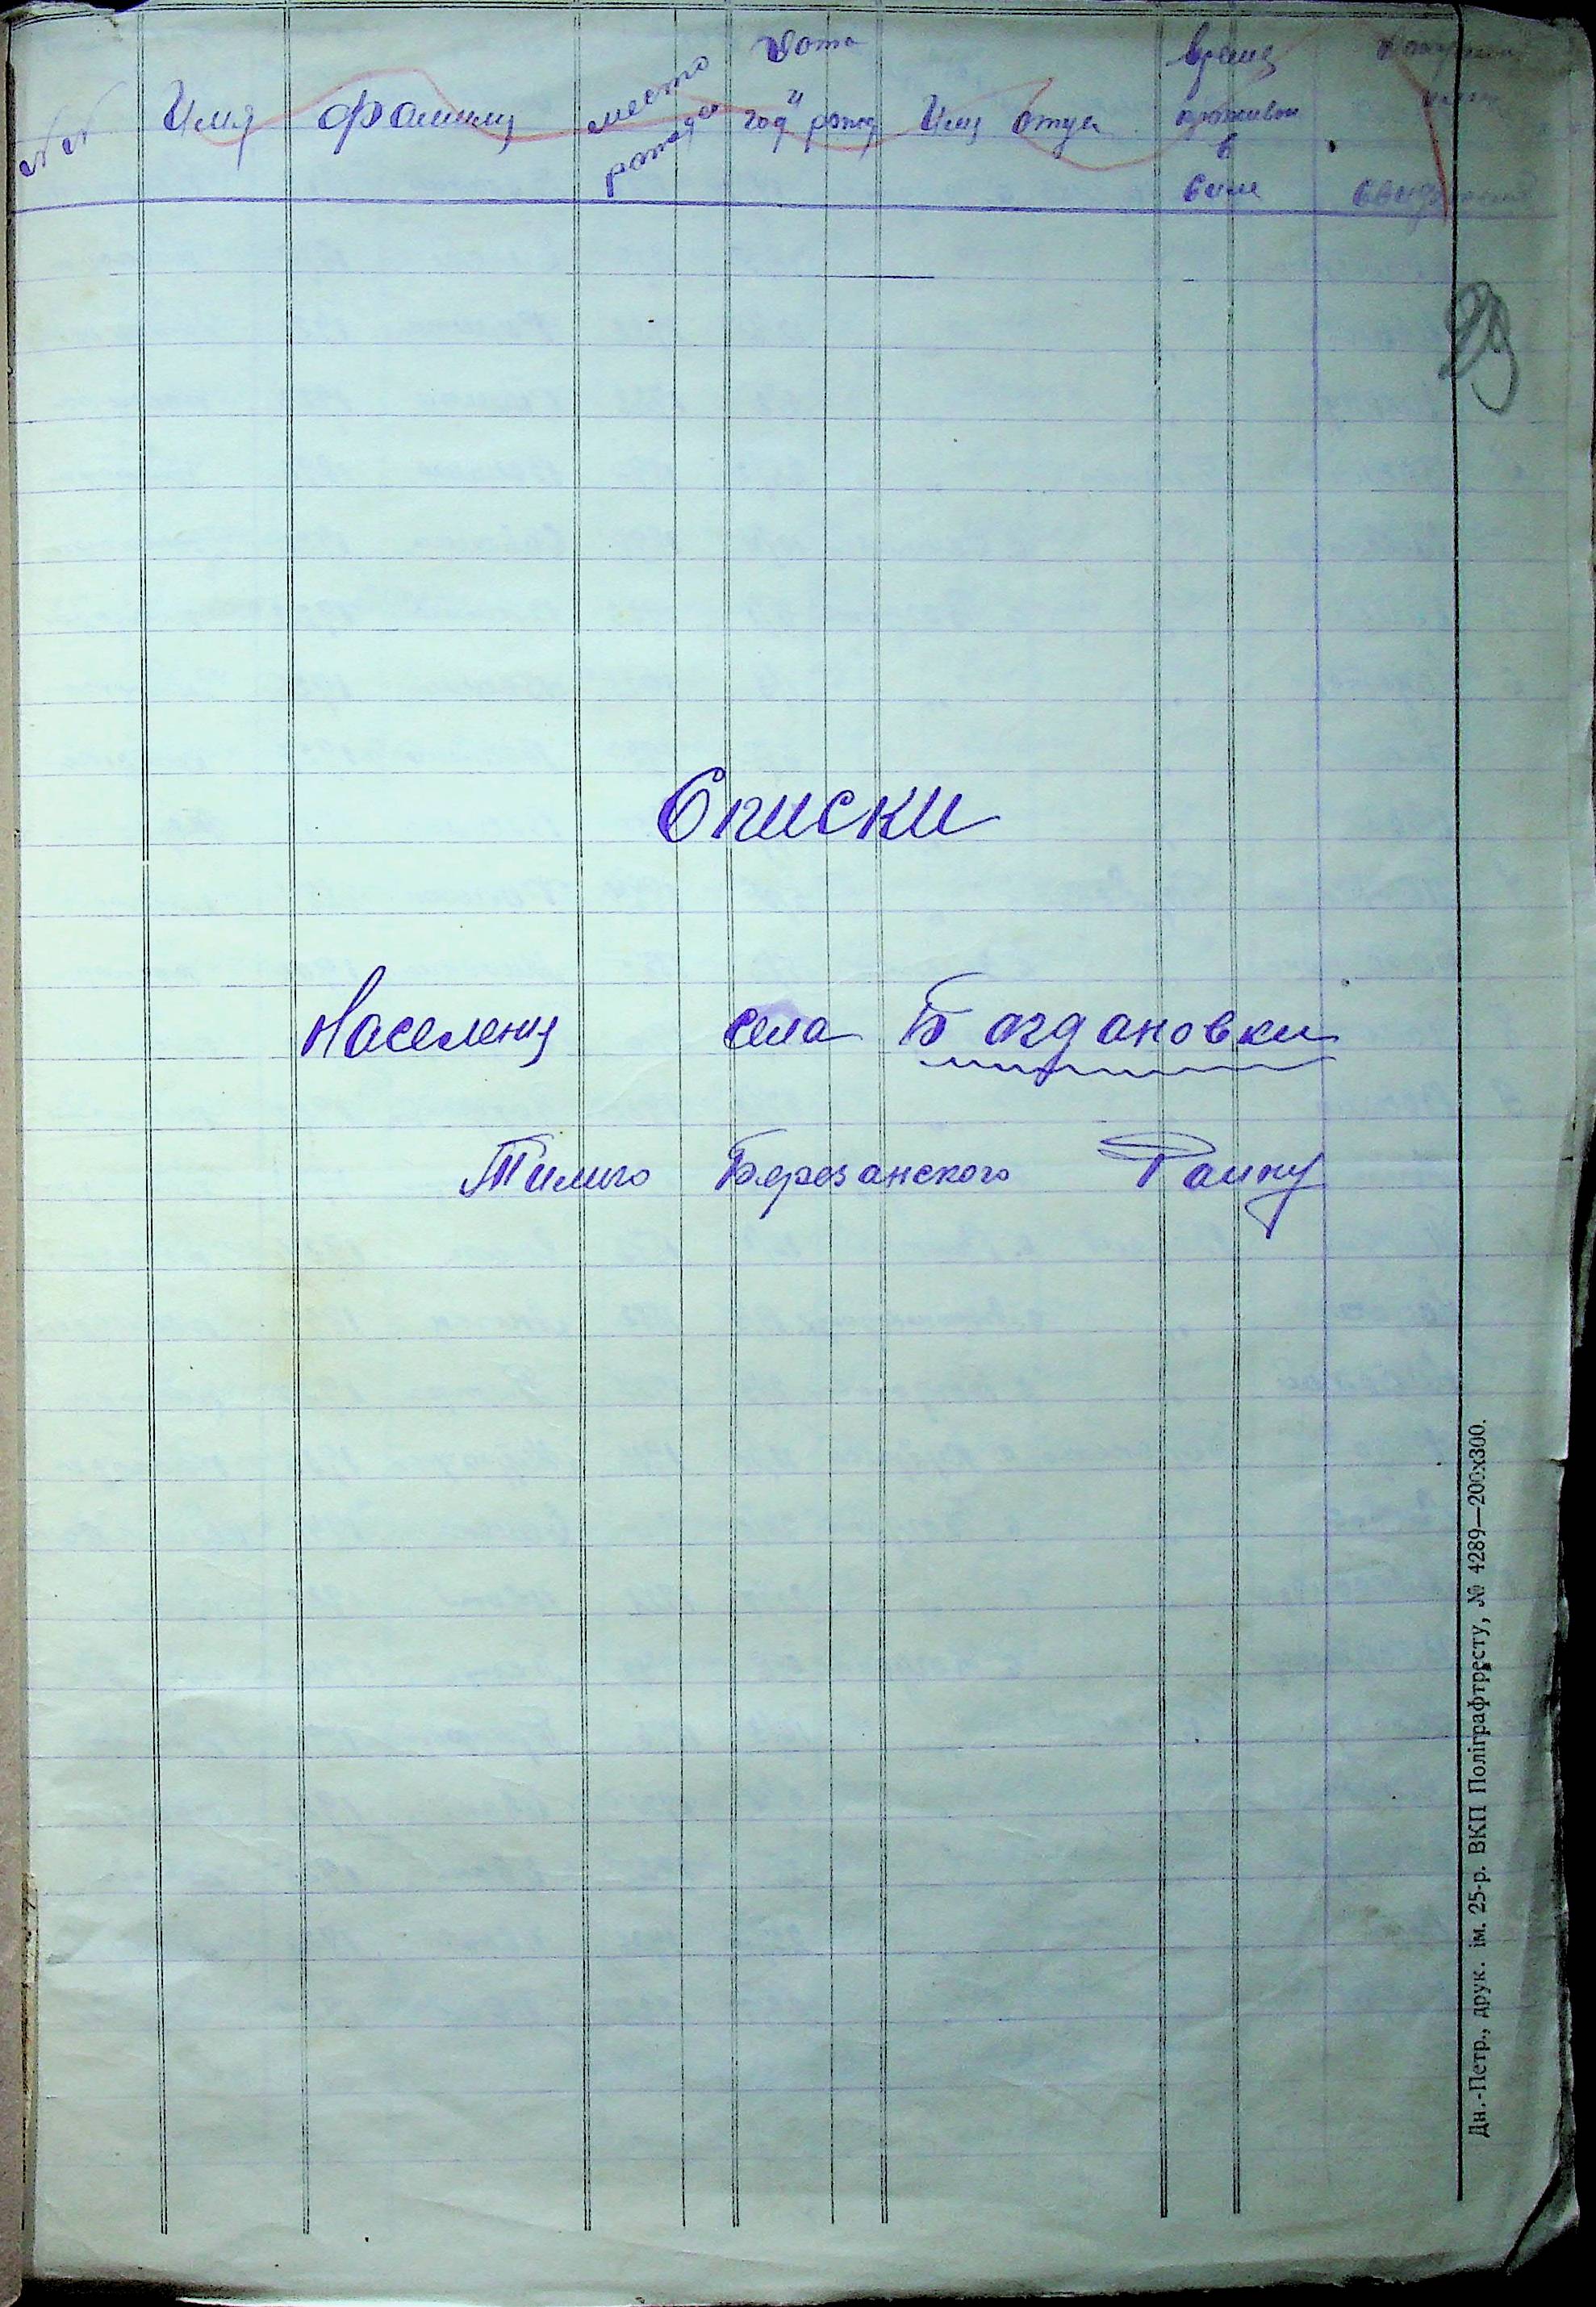 №№ Имя Фамилия место рожден Дата и год рожд Имя отца время проживан в селе
29
Списки
Населения села Богдановки
Тилиго Березанского Раину
Дн.-Петр., друк. ім. 25-р. ВКП Поліграфтресту, № 4289—200х300.